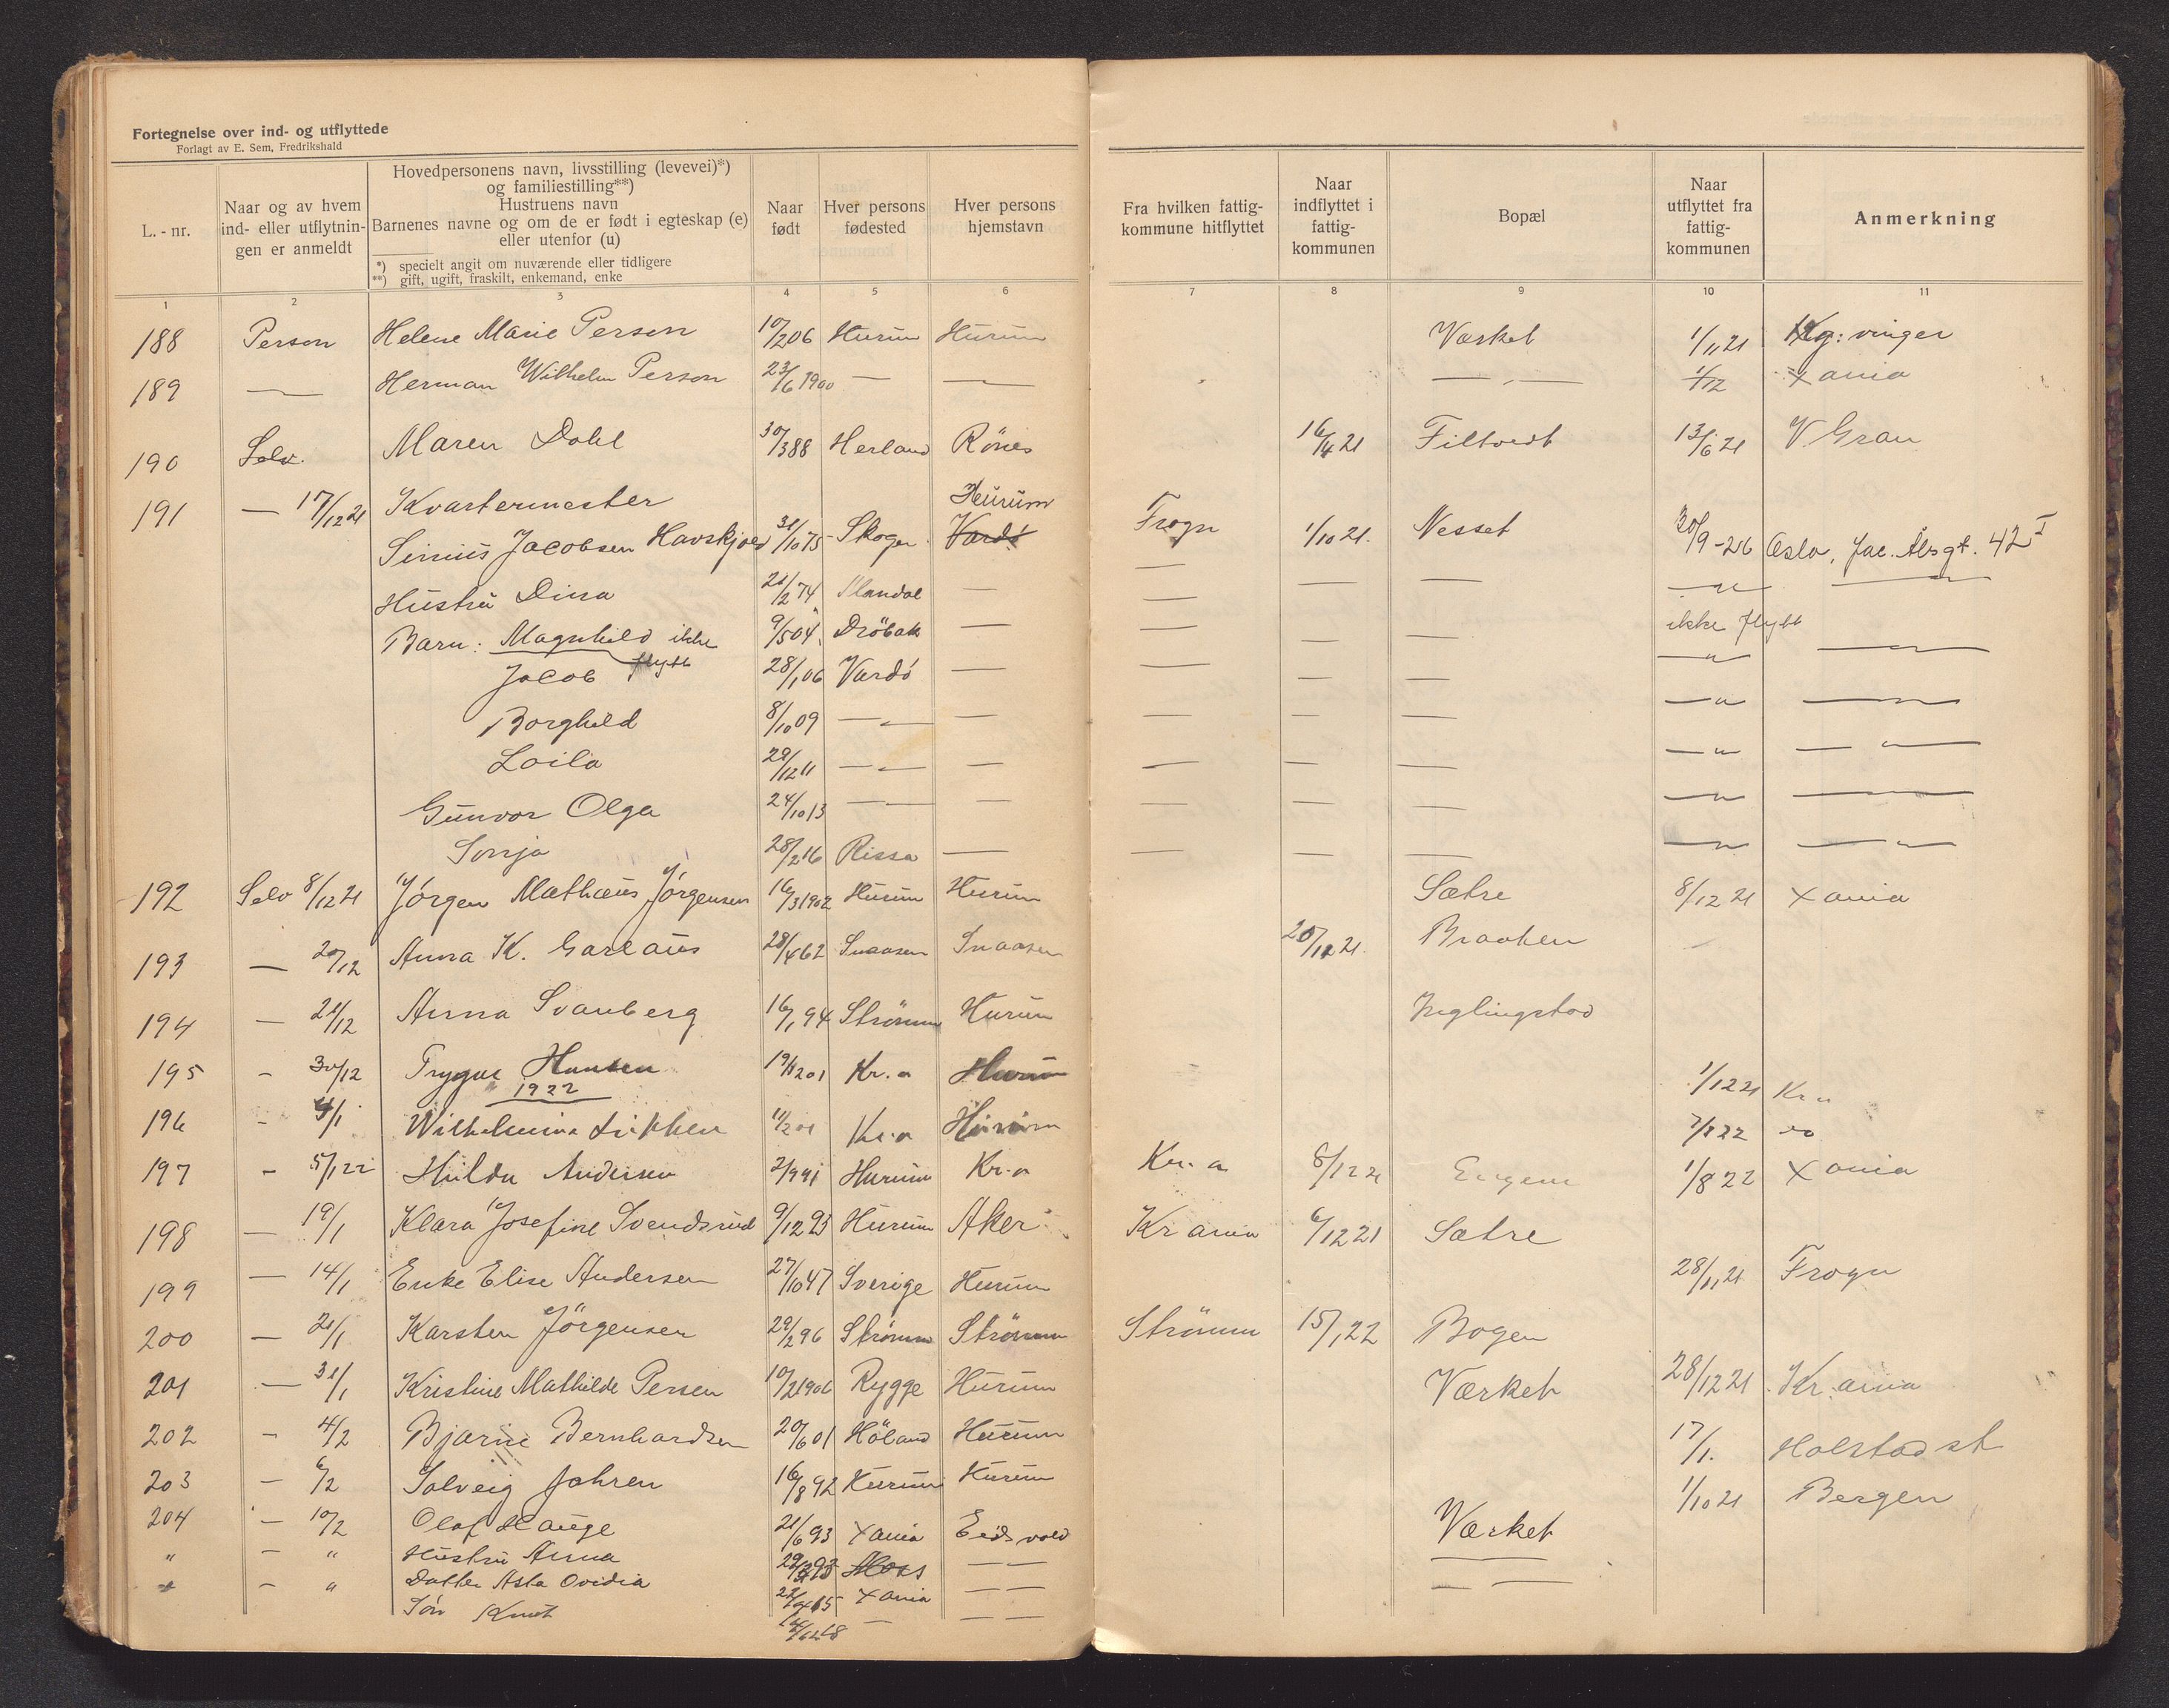 Fortegnelse over ind- og utflyttede
Forlagt av E. Sem, Fredrikshald
L. - nr.
Naar og av hvem ind- eller utflytningen er anmeldt
Hovedpersonens navn, livsstilling (levevei)*) og familiestilling**)
Hustruens navn
Barnenes navne og om de er født i egteskap (e) eller utenfor (u)
*) specielt angit om nuværende eller tidligere
**) gift, ugift, fraskilt, enkemand, enke
Naar født
Hver persons fødested
Hver persons hjemstavn
Fra hvilken fattigkommune hitflyttet
Naar indflyttet i fattigkommunen
Bopæl
Naar utflyttet fra fattigkommunen
Anmerkning
1 2 3 4 5 6 7 8 9 10 11
188 Person Helene Marie Person 10/2 06 Hurum Hurum Værket 1/11 21 Kg: vinger
189 — Herman Wilhelm Person 23/6 1900 — — — " — 1/12 Xania
190 Selv. Maren Dahl 30/3 88 Herland Rönes 16/4 21 Filtvedt 13/6 21 V. Gran
191 — 17/12 21 Kvartermester Hurum
Sinius Jacobsen Havskjold 31/10 75 Skoger Vardö Frogn 1/10 21. Nesset 30/9-26 Oslo, Jac. Alsgt. 42 I
Hustru Dina 21/2 74 Mandal — — — — — " — — " —
Barn: Magnhild ikke flytt 9/5 04 Dröbak — — — — ikke flytt
Jacob 28/1 06 Vardö — — — — — " — — " —
Borghild 8/10 09 — " — — — — — — " — — " —
Loila 29/12 11 — " — — — — — — " — — " —
Gunvor Olga 24/10 13 — — — — — — " — — " —
Sonja 28/2 16 Rissa — — — — — " — — " —
192 Selv 8/12 21 Jörgen Mathæus Jörgensen 16/3 1902 Hurum Hurum Sætre 8/12 21 Xania
193 — 20/12 Anna K. Garlaus 28/4 62 Snaasen Snaasen 20/12 21. Braaten
194 — 21/12 Anna Svanberg 16/1 94 Strömm Hurum
195 - 30/12 Trygve Hansen Kr.a Hurum 1/12 21 Kr.a
1922
196 - 4/1 Wilhelmine Kr.a Hurum
197 - 5/1 22 Hulda Andersen 2/9 91 Hurum Kr.a Kr.a 8/12 21 1/8 22 Xania
198 — 19/1 Klara Josefine Svendsrud 9/12 93 Hurum Aker Krania 6/12 21 Sætre
199 — 14/1 Enke Elise Andersen 27/10 47 Sverige Hurum 28/11 21 Frogn
200 — 21/1 Karsten Jörgensen 29/2 96 Strömm Strömm Strömm 15/1 22 Bogen
201 — 31/1 Kristine Mathilde Persen 10/2 1906 Rygge Hurum Værket 28/12 21 Kr.ania
202 - 4/2 Bjarne Bernhardsen 20/6 01 Höland Hurum 17/1. Holstad st
203 — 6/2 Solveig Johren 16/8 92 Hurum Hurum 1/10 21 Bergen
204 — 10/2 Olaf Hauge 21/6 93 Xania Eidsvold Værket
" — " Hustru Anna Moss — —
" — " Datter Asta Ovidia Xania — — — —
Sön Knut — — —